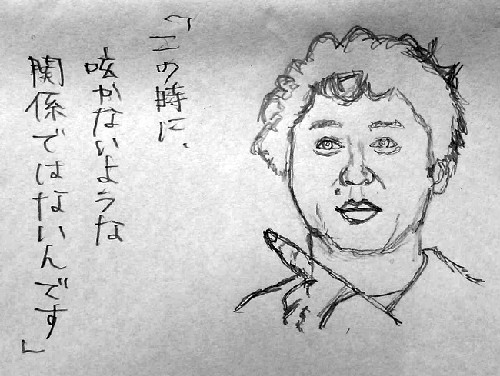 「この時に、
呟かないような
関係ではないんです」